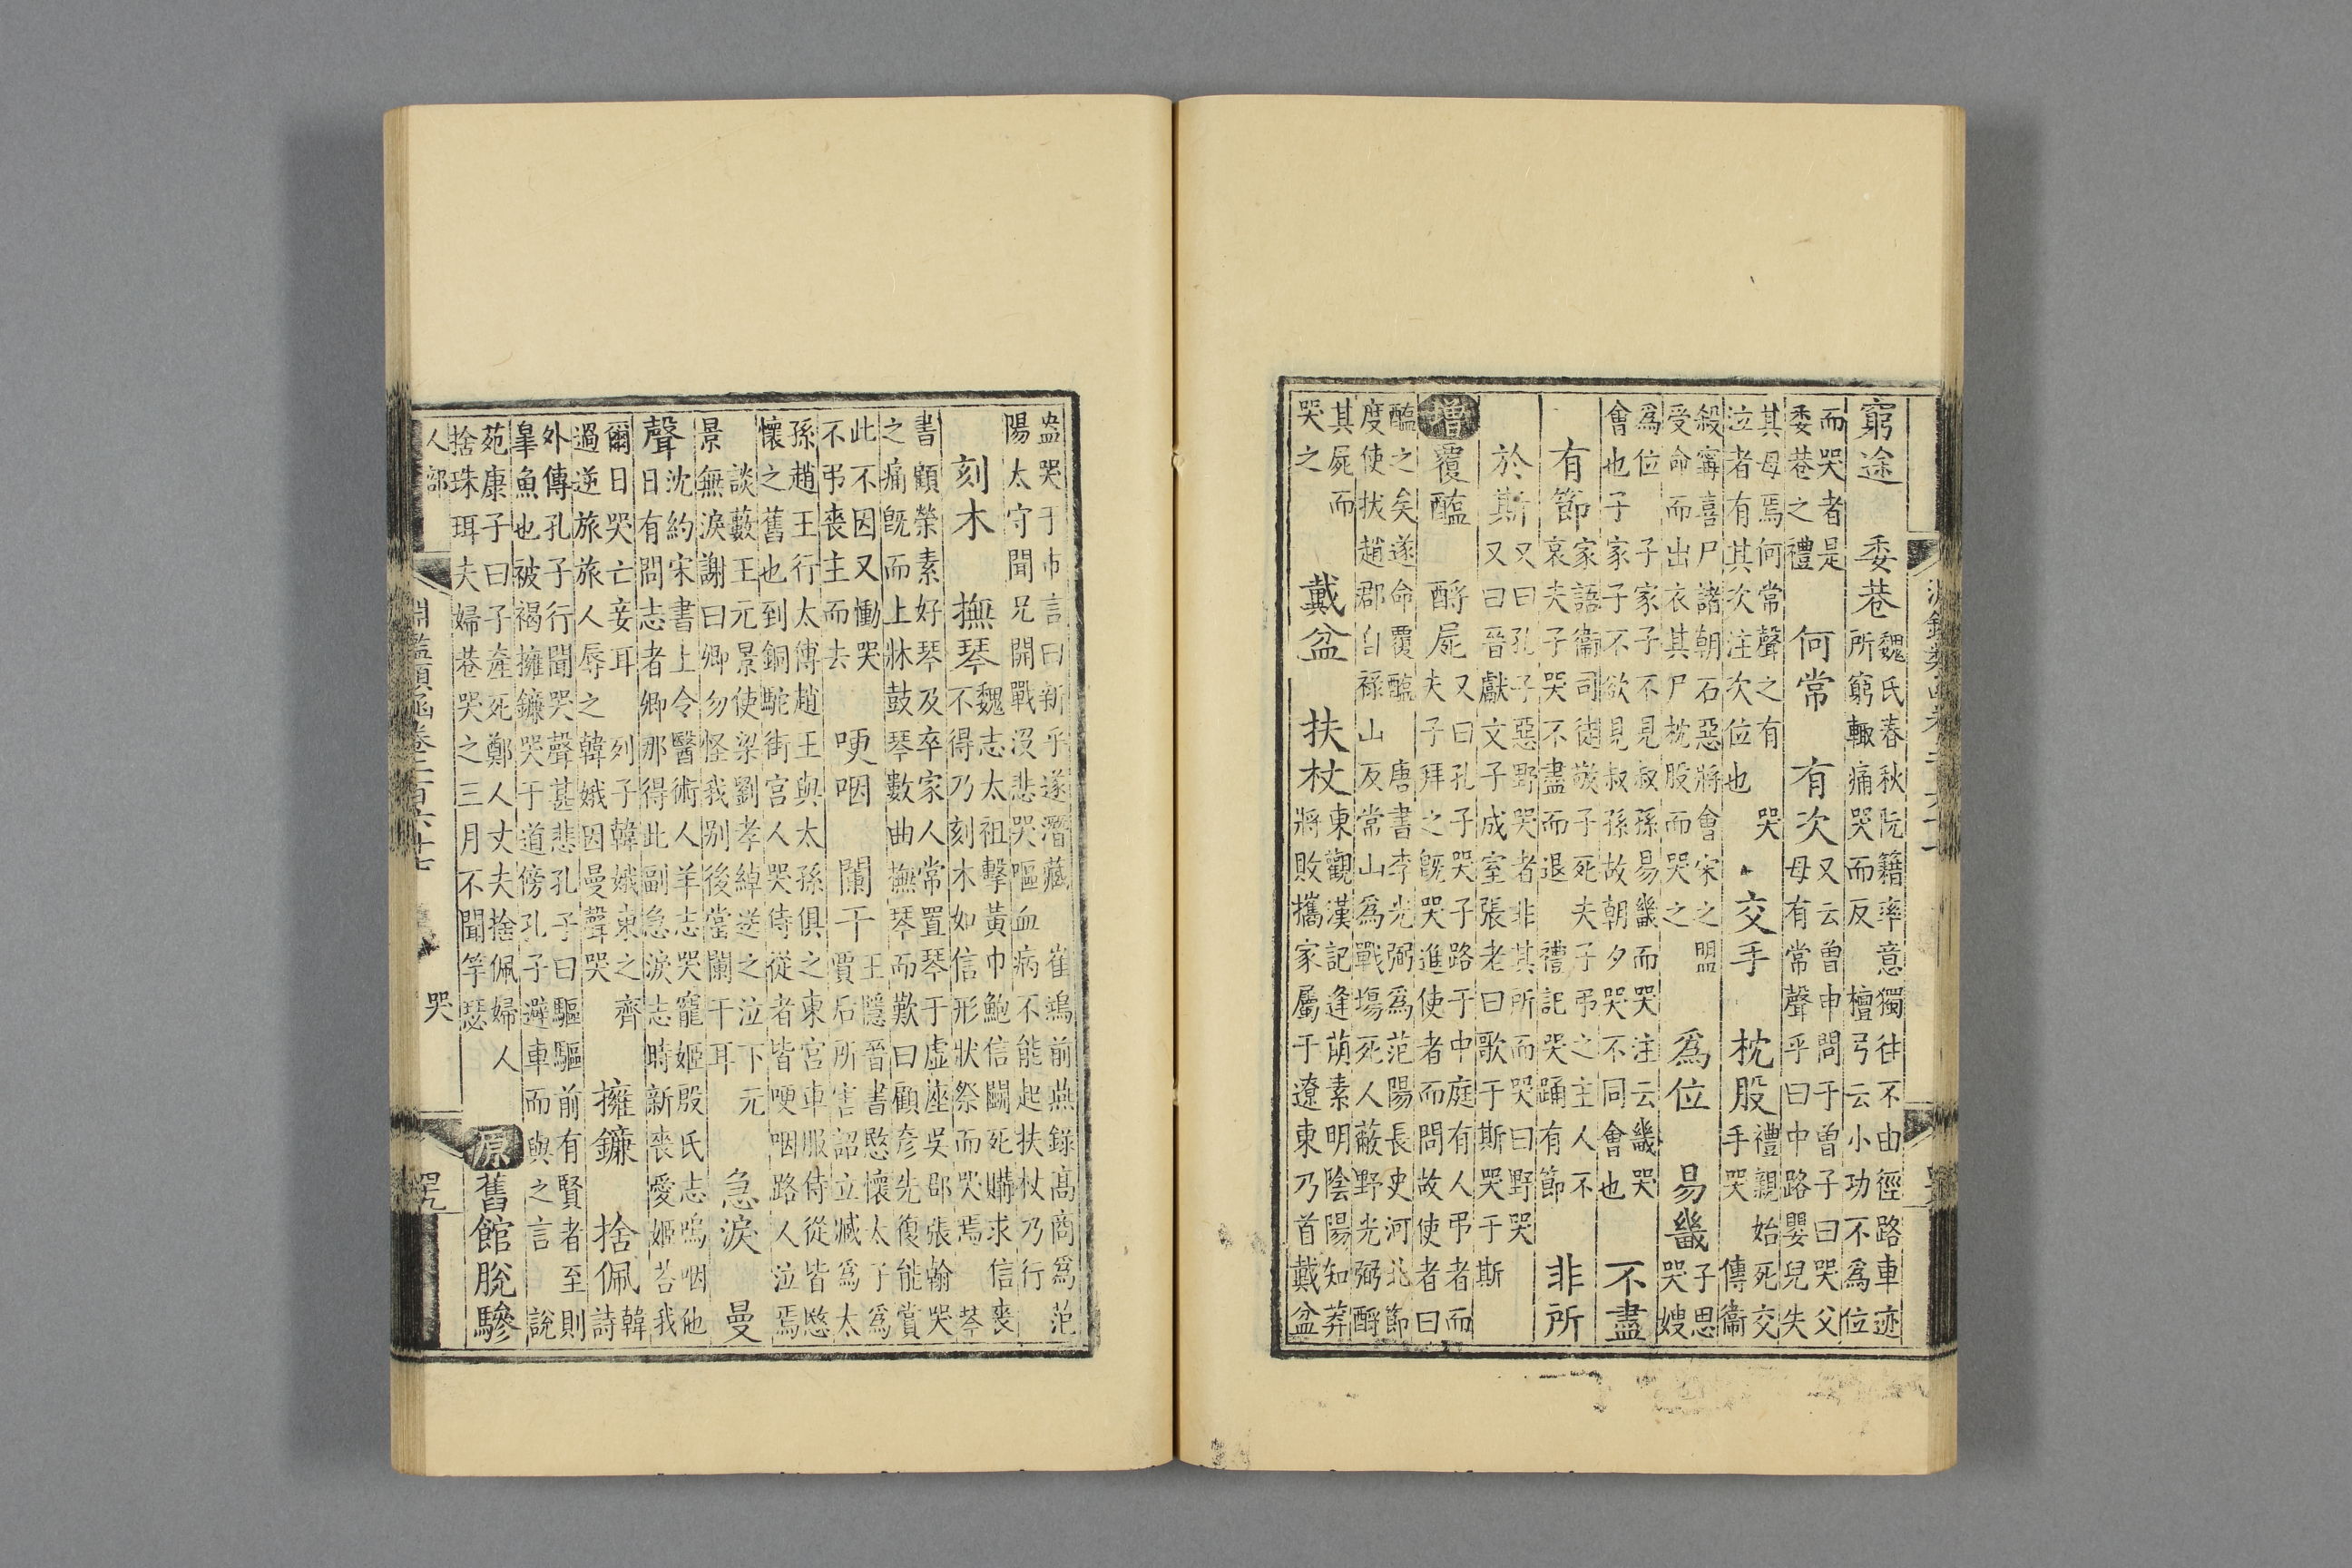 窮途 委巷 魏氏春秋阮籍率意獨往不由徑路車迹所窮輒痛哭而反 檀弓云小功不爲位
而哭者是委巷之禮 何常 有次 又云曾申問于曾子曰哭父母有常聲乎曰中路嬰兒失
其母焉何常聲之有 哭泣者有其次注次位也 交手 枕股 禮親始死交手哭 傳衞
殺甯喜尸諸朝石惡將會宋之盟受命而出衣其尸枕股而哭之 爲位 易畿 子思哭嫂
爲位 子家子不見叔孫易畿而哭注云畿哭會也子家子不欲見叔孫故朝夕哭不同會也 不盡
有節 家語衞司徒敬子死夫子弔之主人不哀夫子哭不盡而退 禮記哭踊有節 非所
於斯 又曰孔子惡野哭者非其所而哭曰野哭 又曰晉獻文子成室張老曰歌于斯哭于斯
增 覆醢 酹屍 又曰孔子哭子路于中庭有人弔者而夫子拜之旣哭進使者而問故使者曰
醢之矣遂命覆醢 唐書李光弼爲范陽長吏河北節度使拔趙郡自祿山反常山爲戰塲死人蔽野光弼酹
其屍而哭之 戴盆 扶杖 東觀漢記逢萌素明陰陽知莽將敗攜家屬于遼東乃首戴盆
盎哭于市言曰新乎遂潛藏 崔鴻前燕錄高商爲范陽太守聞兄開戰沒悲哭嘔血病不能起扶杖乃行
刻木 撫琴 魏志太祖擊黃巾鮑信鬬死購求信喪不得乃刻木如信形狀祭而哭焉 琴
書顧榮素好琴及卒家人常置琴于虛座吳郡張翰哭之痛旣而上牀鼓琴數曲撫琴而歎曰顧彥先復能賞
此不因又慟哭不弔喪主而去 哽咽 闌干 王隱晉書愍懷太子爲賈后所害詔立臧爲太
孫趙王行太傅趙王與太孫俱之東宮車服侍從皆愍懷之舊也到銅駝街宮人哭侍從者皆哽咽路人泣焉
談藪王元景使梁劉孝綽送之泣下元景無淚謝曰卿勿怪我別後當闌干耳 急淚 曼
聲 沈約宋書上令醫術人羊志哭寵姬殷氏志嗚咽他日有問志者卿那得此副急淚志時新喪愛姬荅我
爾日哭亡妾耳 列子韓娥東之齊過逆旅旅人辱之韓娥因曼聲哭 擁鐮 捨佩 韓詩
外傳孔子行聞哭聲甚悲孔子曰驅驅前有賢者至則皐魚也被褐擁鐮哭于道傍孔子避車而與之言 說
苑康子曰子產死鄭人丈夫捨佩婦人捨珠珥夫婦巷哭之三月不聞竽瑟 原 舊館脫驂
人部 淵鑑類函卷二百六十七 哭